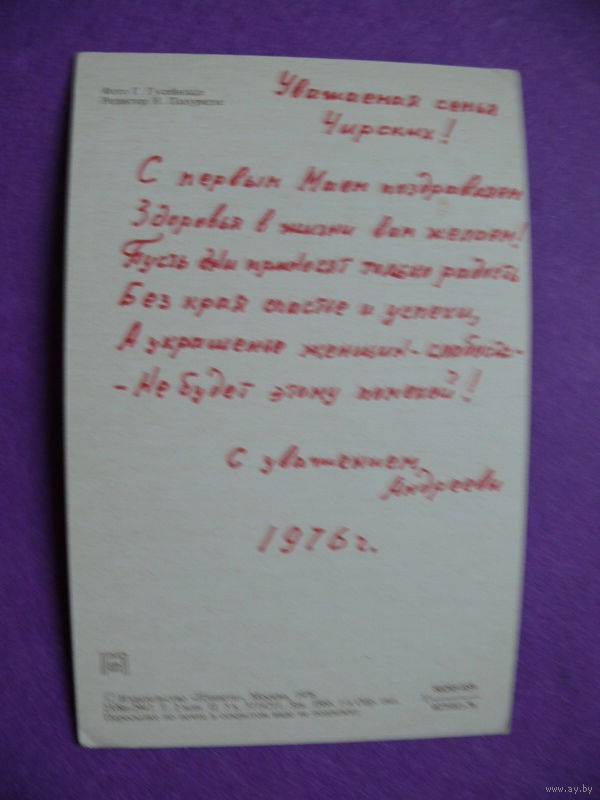 Фото Г.
Редактор Н.
Уважаемая семья
Чирских!
С первым Маем поздравляем
Здоровья в жизни вам желаем!
Пусть дни приносят только радость
Без края счастье и успехи,
А украшенье женщин - слабость -
- Не будет этому помехой!
С уважением,
Андреевы
1976 г.
Москва,
www.ay.by